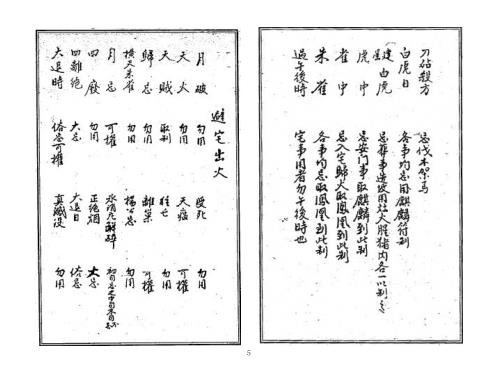 刀砧殺方 忌伐木架馬
白虎日 各事均忌用麒麟符制
建星白虎 忌葬事造用灶火腥猪肉各一以制之
虎中 忌安門事取麒麟到此制
雀中 忌入宅歸火取鳳凰到此制
朱雀 各事均忌取鳳凰到此制
過午後時 宅事用者勿午後時也
避宅出火
月破 勿用 受死 勿用
天火 勿用 天瘟 可權
天賊 取制 往亡 勿用
歸忌 勿用 離巢 可權
橫天朱雀 楊公忌 勿用
月忌 可權 氷消瓦解碎 初旬忌之中旬末旬不忌
四廢 勿用 正絕烟 大忌
四離絕 大忌 大退日 俗忌
大退時 俗忌可權 真滅没 勿用
5